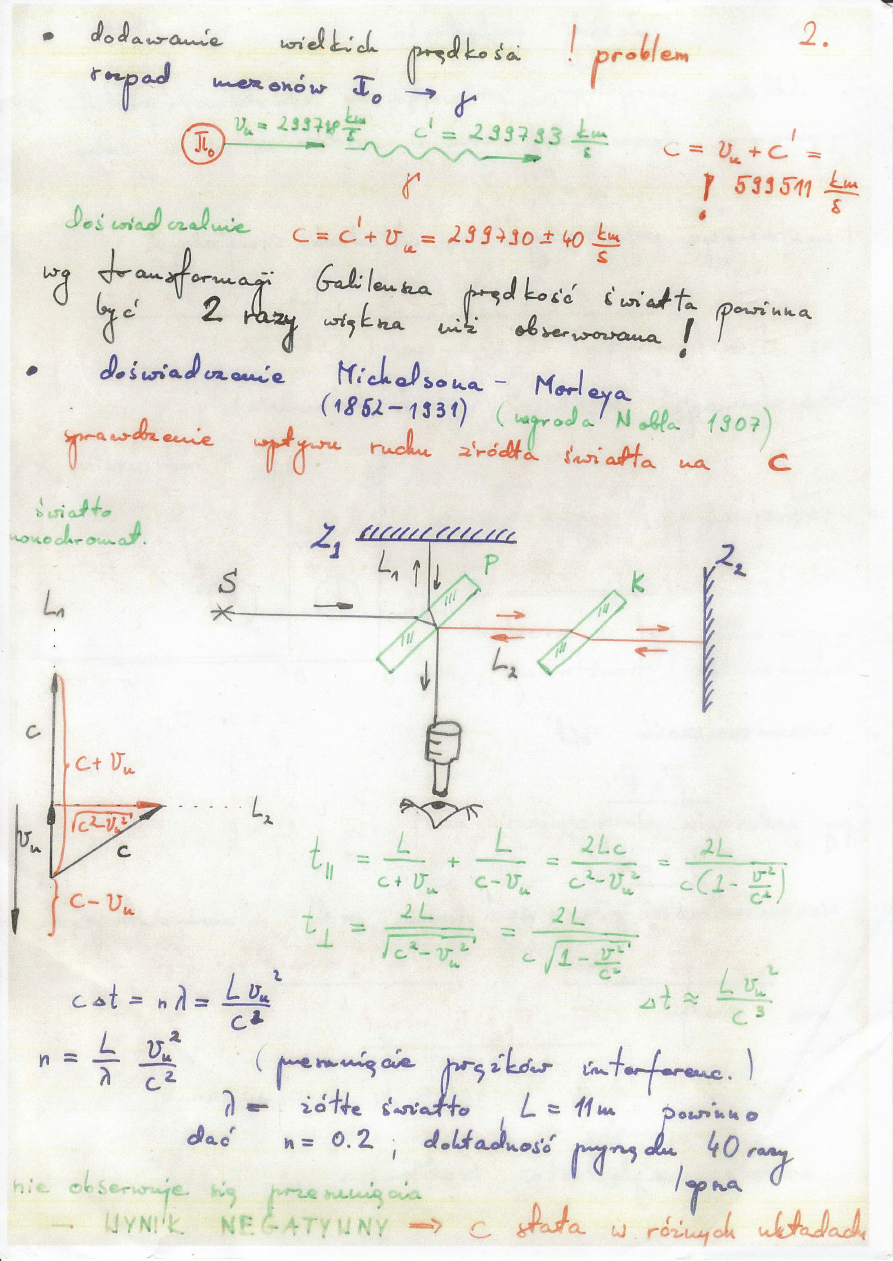 2.
• dodawanie wielkich prędkości ! problem
rozpad mezonów π₀ → γ
π₀ vᵤ = 299718 km/s c' = 299793 km/s
γ
c = vᵤ + c' =
! 599511 km/s
doświadczalnie c = c' + vᵤ = 299790 ± 40 km/s
wg transformacji Galileusza prędkość światła powinna
być 2 razy większa niż obserwowana !
• doświadczenie Michelsona - Morleya
(1852-1931) (nagroda Nobla 1907)
sprawdzenie wpływu ruchu źródła światła na c
światło
monochromat.
Z₁
L₁
P
K
Z₂
S
L₂
L₁
c
c + vᵤ
√(c²-vᵤ²)
L₂
vᵤ
c
c - vᵤ
t∥ = L/(c+vᵤ) + L/(c-vᵤ) = 2Lc/(c²-vᵤ²) = 2L/(c(1-v²/c²))
t⊥ = 2L/√(c²-vᵤ²) = 2L/(c√(1-v²/c²))
c Δt = nλ = Lvᵤ²/c²
Δt ≈ Lvᵤ²/c³
n = L/λ vᵤ²/c² (przesunięcie prążków interferenc.)
λ = żółte światło, L = 11m powinno
dać n = 0.2 ; dokładność przyrządu 40 razy
lepsza
nie obserwuje się przesunięcia
→ WYNIK NEGATYWNY ⇒ c stała w różnych układach